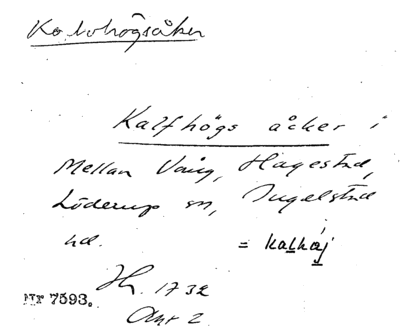 Kalvhögsåker
Kalfhögs åcker i
Mellan Vång, Hagestad,
Löderup sn, Ingelstad
hd. = kalhøj
Hh. 1732
Akt 2
Nr 7593.